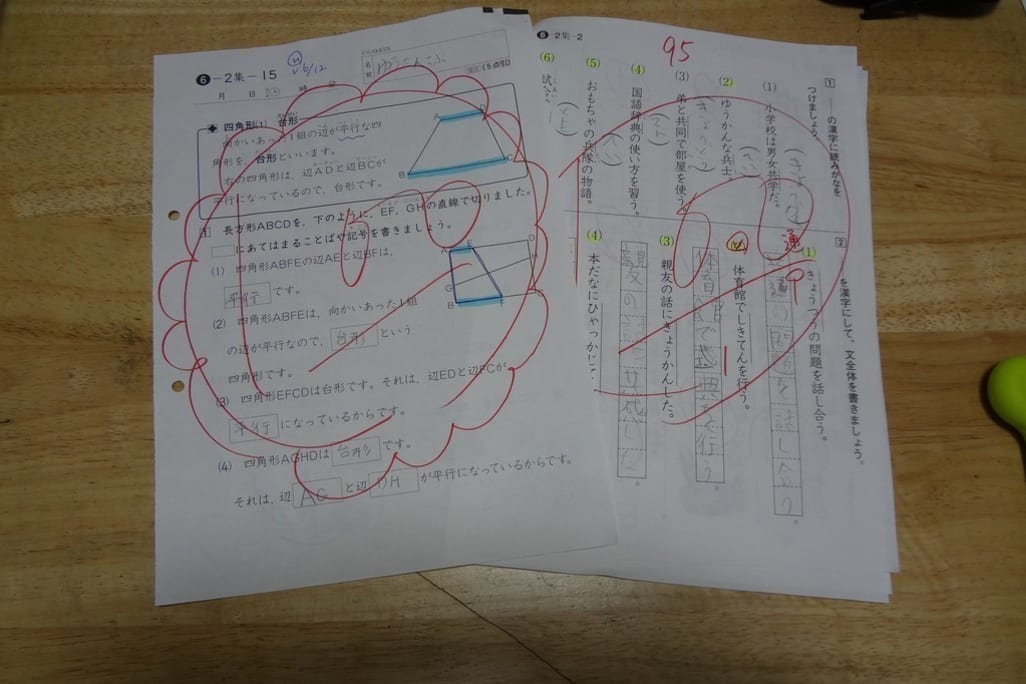 6-2集-15
6/12
月 日 時 分
©GAKKEN
名前
(5点引)
四角形(1) 台形
向かいあった1組の辺が平行な四
角形を、台形といいます。
右の四角形は、辺ADと辺BCが
平行になっているので、台形です。
A D
B C
1 長方形ABCDを、下のように、EF、GHの直線で切りました。
□にあてはまることばや記号を書きましょう。
(1) 四角形ABFEの辺AEと辺BFは、
平行 です。
(2) 四角形ABFEは、向かいあった1組
の辺が平行なので、 台形 という
四角形です。
A E D
G H
B F C
(3) 四角形EFCDは台形です。それは、辺EDと辺FCが
平行 になっているからです。
(4) 四角形AGHDは 台形 です。
それは、辺 AG と辺 DH が平行になっているからです。
6 2集-2
95
1 ――の漢字に読みがなを
つけましょう。
(1) 小学校は男女共学だ。
(2) ゆうかんな兵士。
(3) 弟と共同で部屋を使う
(4) 国語辞典の使い方を習う。
(5) おもちゃの兵隊の物語。
(6)
2 を漢字にして、文全体を書きましょう。
(1) きょうつうの問題を話し合う。
通
共通の問題を話し合う
(2) 体育館でしきてんを行う。
体育館で式典を行う
(3) 親友の話にきょうかんした。
親友の話に共感した
(4) 本だなにひゃっかじ